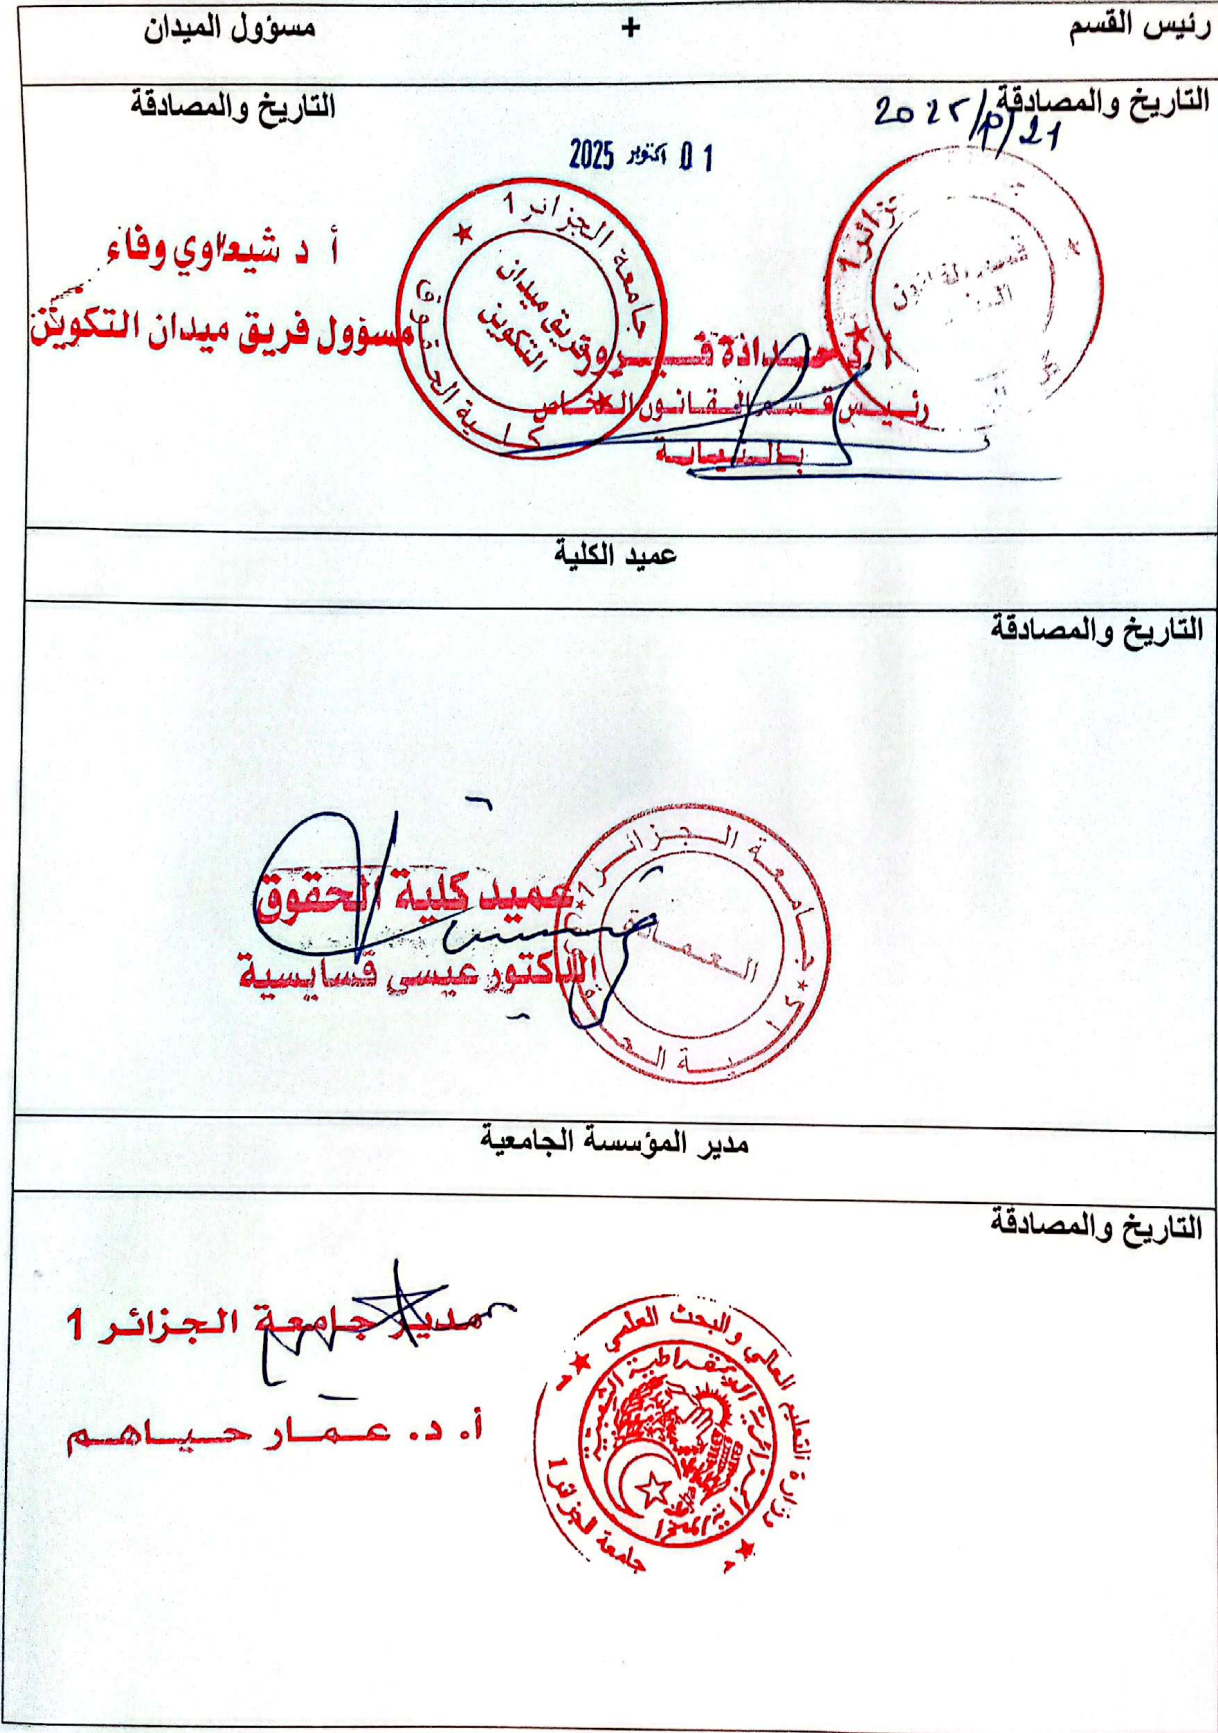 رئيس القسم + مسؤول الميدان
التاريخ والمصادقة
التاريخ والمصادقة
01 اكتوبر 2025
جامعة الجزائر 1
كلية الحقوق
فريق ميدان
التكوين
أ د شيعاوي وفاء
مسؤول فريق ميدان التكوين
رئيس قسم القانون الخاص
بالنيابة
عميد الكلية
التاريخ والمصادقة
عميد كلية الحقوق
الدكتور عيسى قسايسية
جامعة الجزائر 1
العمادة
مدير المؤسسة الجامعية
التاريخ والمصادقة
مدير جامعة الجزائر 1
أ. د. عمار حياهم
وزارة التعليم العالي والبحث العلمي
الجمهورية الجزائرية الديمقراطية الشعبية
جامعة الجزائر 1